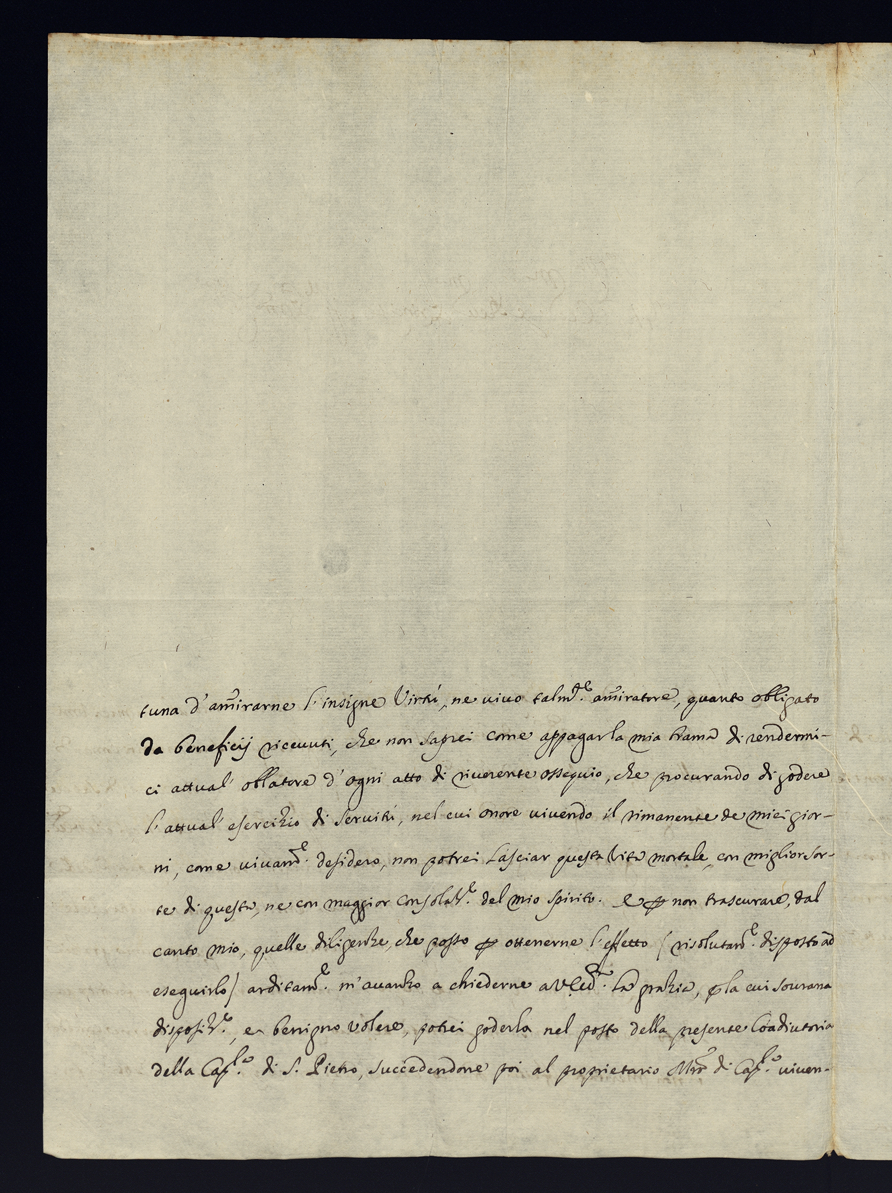 tuna d'amirarne l'insigne Virtù, ne vivo talm.e amiratore, quanto obligato
da beneficij riceuuti, che non saprei come appagar la mia brama di rendermi-
ci attual oblatore d'ogni atto di riuerente ossequio, che procurando di godere
l'attual esercizio di Seruitù, nel cui onore viuendo il rimanente de miei gior-
ni, come viuam.e desidero, non potrei lasciar questa vita mortale, con miglior sor-
te di questa, ne con maggior consolaz.e del mio Spirito. e p non trascurare, dal
canto mio, quelle diligenze, che posso p ottenerne l'effetto (risolutam.e disposto ad
eseguirlo) arditam.e m'auanzo a chiederne a la grazia, p la cui sourana
disposiz.e, e benigno volere, potrei goderla nel posto della presente Coadiutoria
della Cap.la di S. Pietro, succedendone poi al proprietario Mro di Cap.la viuen-